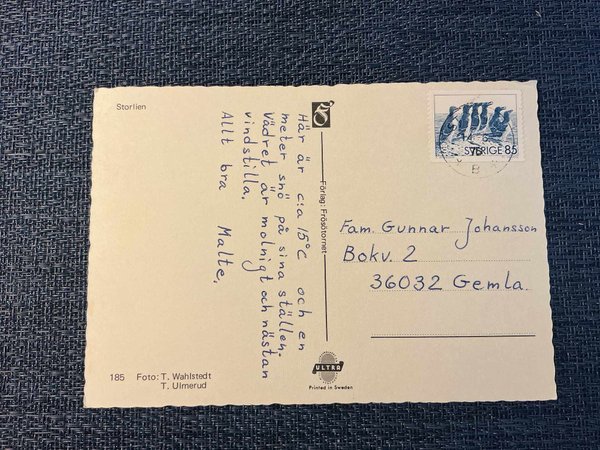 Storlien
Här är c:a 15°C och en
meter snö på sina ställen.
Vädret är molnigt och nästan
vindstilla.
Allt bra Malte.
Förlag: Frösötornet
SVERIGE 85
75
B
Fam. Gunnar Johansson
Bokv. 2
36032 Gemla.
185 Foto: T. Wahlstedt
T. Ulmerud
ULTRA
Printed in Sweden